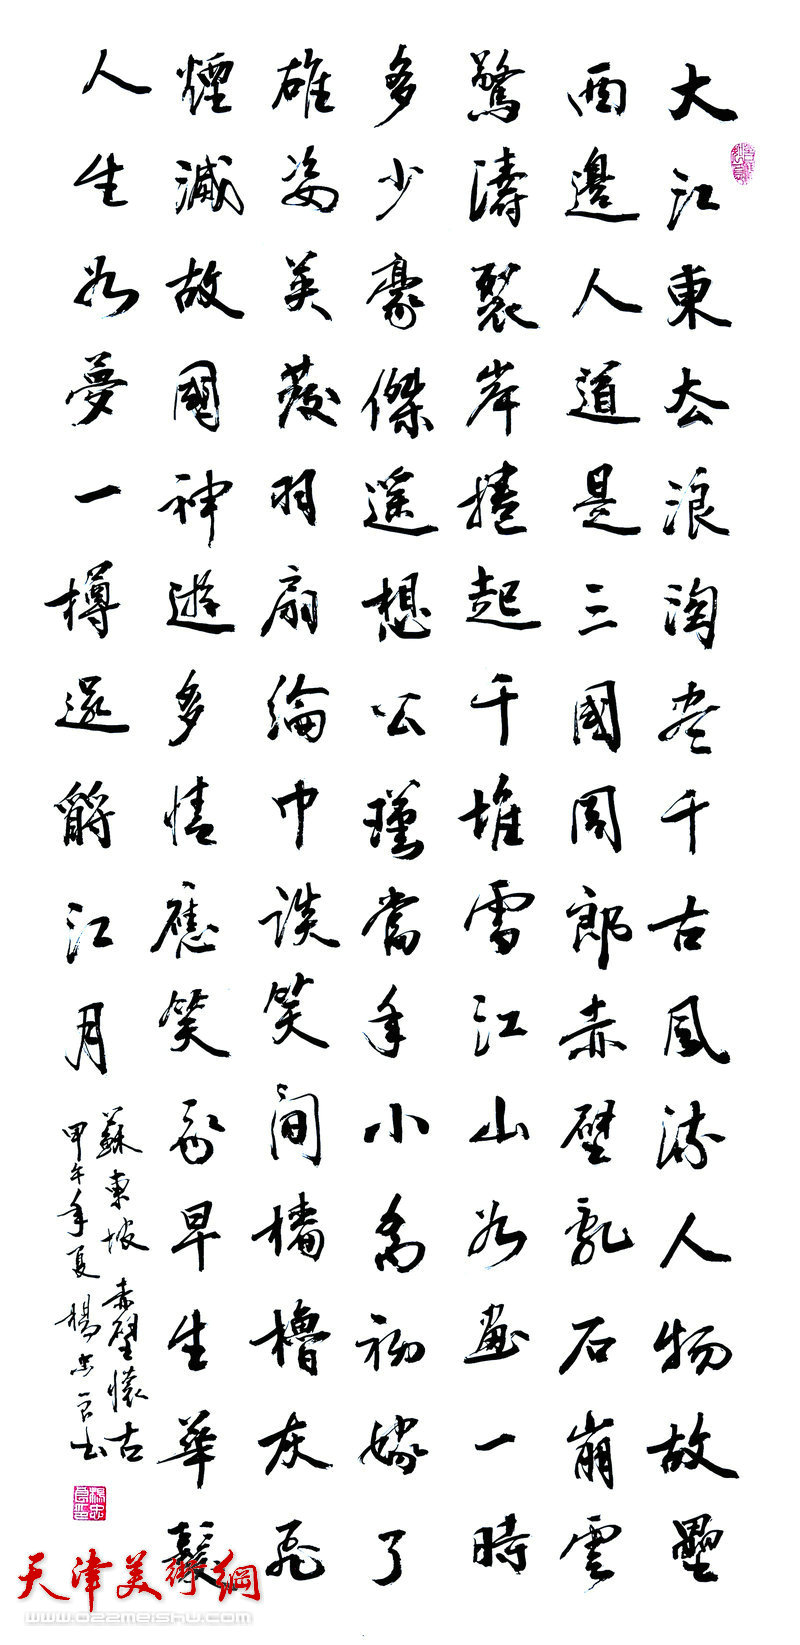 大江東去浪淘盡千古風流人物故壘
西邊人道是三國周郎赤壁亂石崩雲
驚濤裂岸捲起千堆雪江山如畫一時
多少豪傑遙想公瑾當年小喬初嫁了
雄姿英發羽扇綸巾談笑間檣櫓灰飛
煙滅故國神遊多情應笑我早生華髮
人生如夢一樽還酹江月
蘇東坡赤壁懷古
甲午年夏楊忠良书
天津美術網
www.022meishu.com